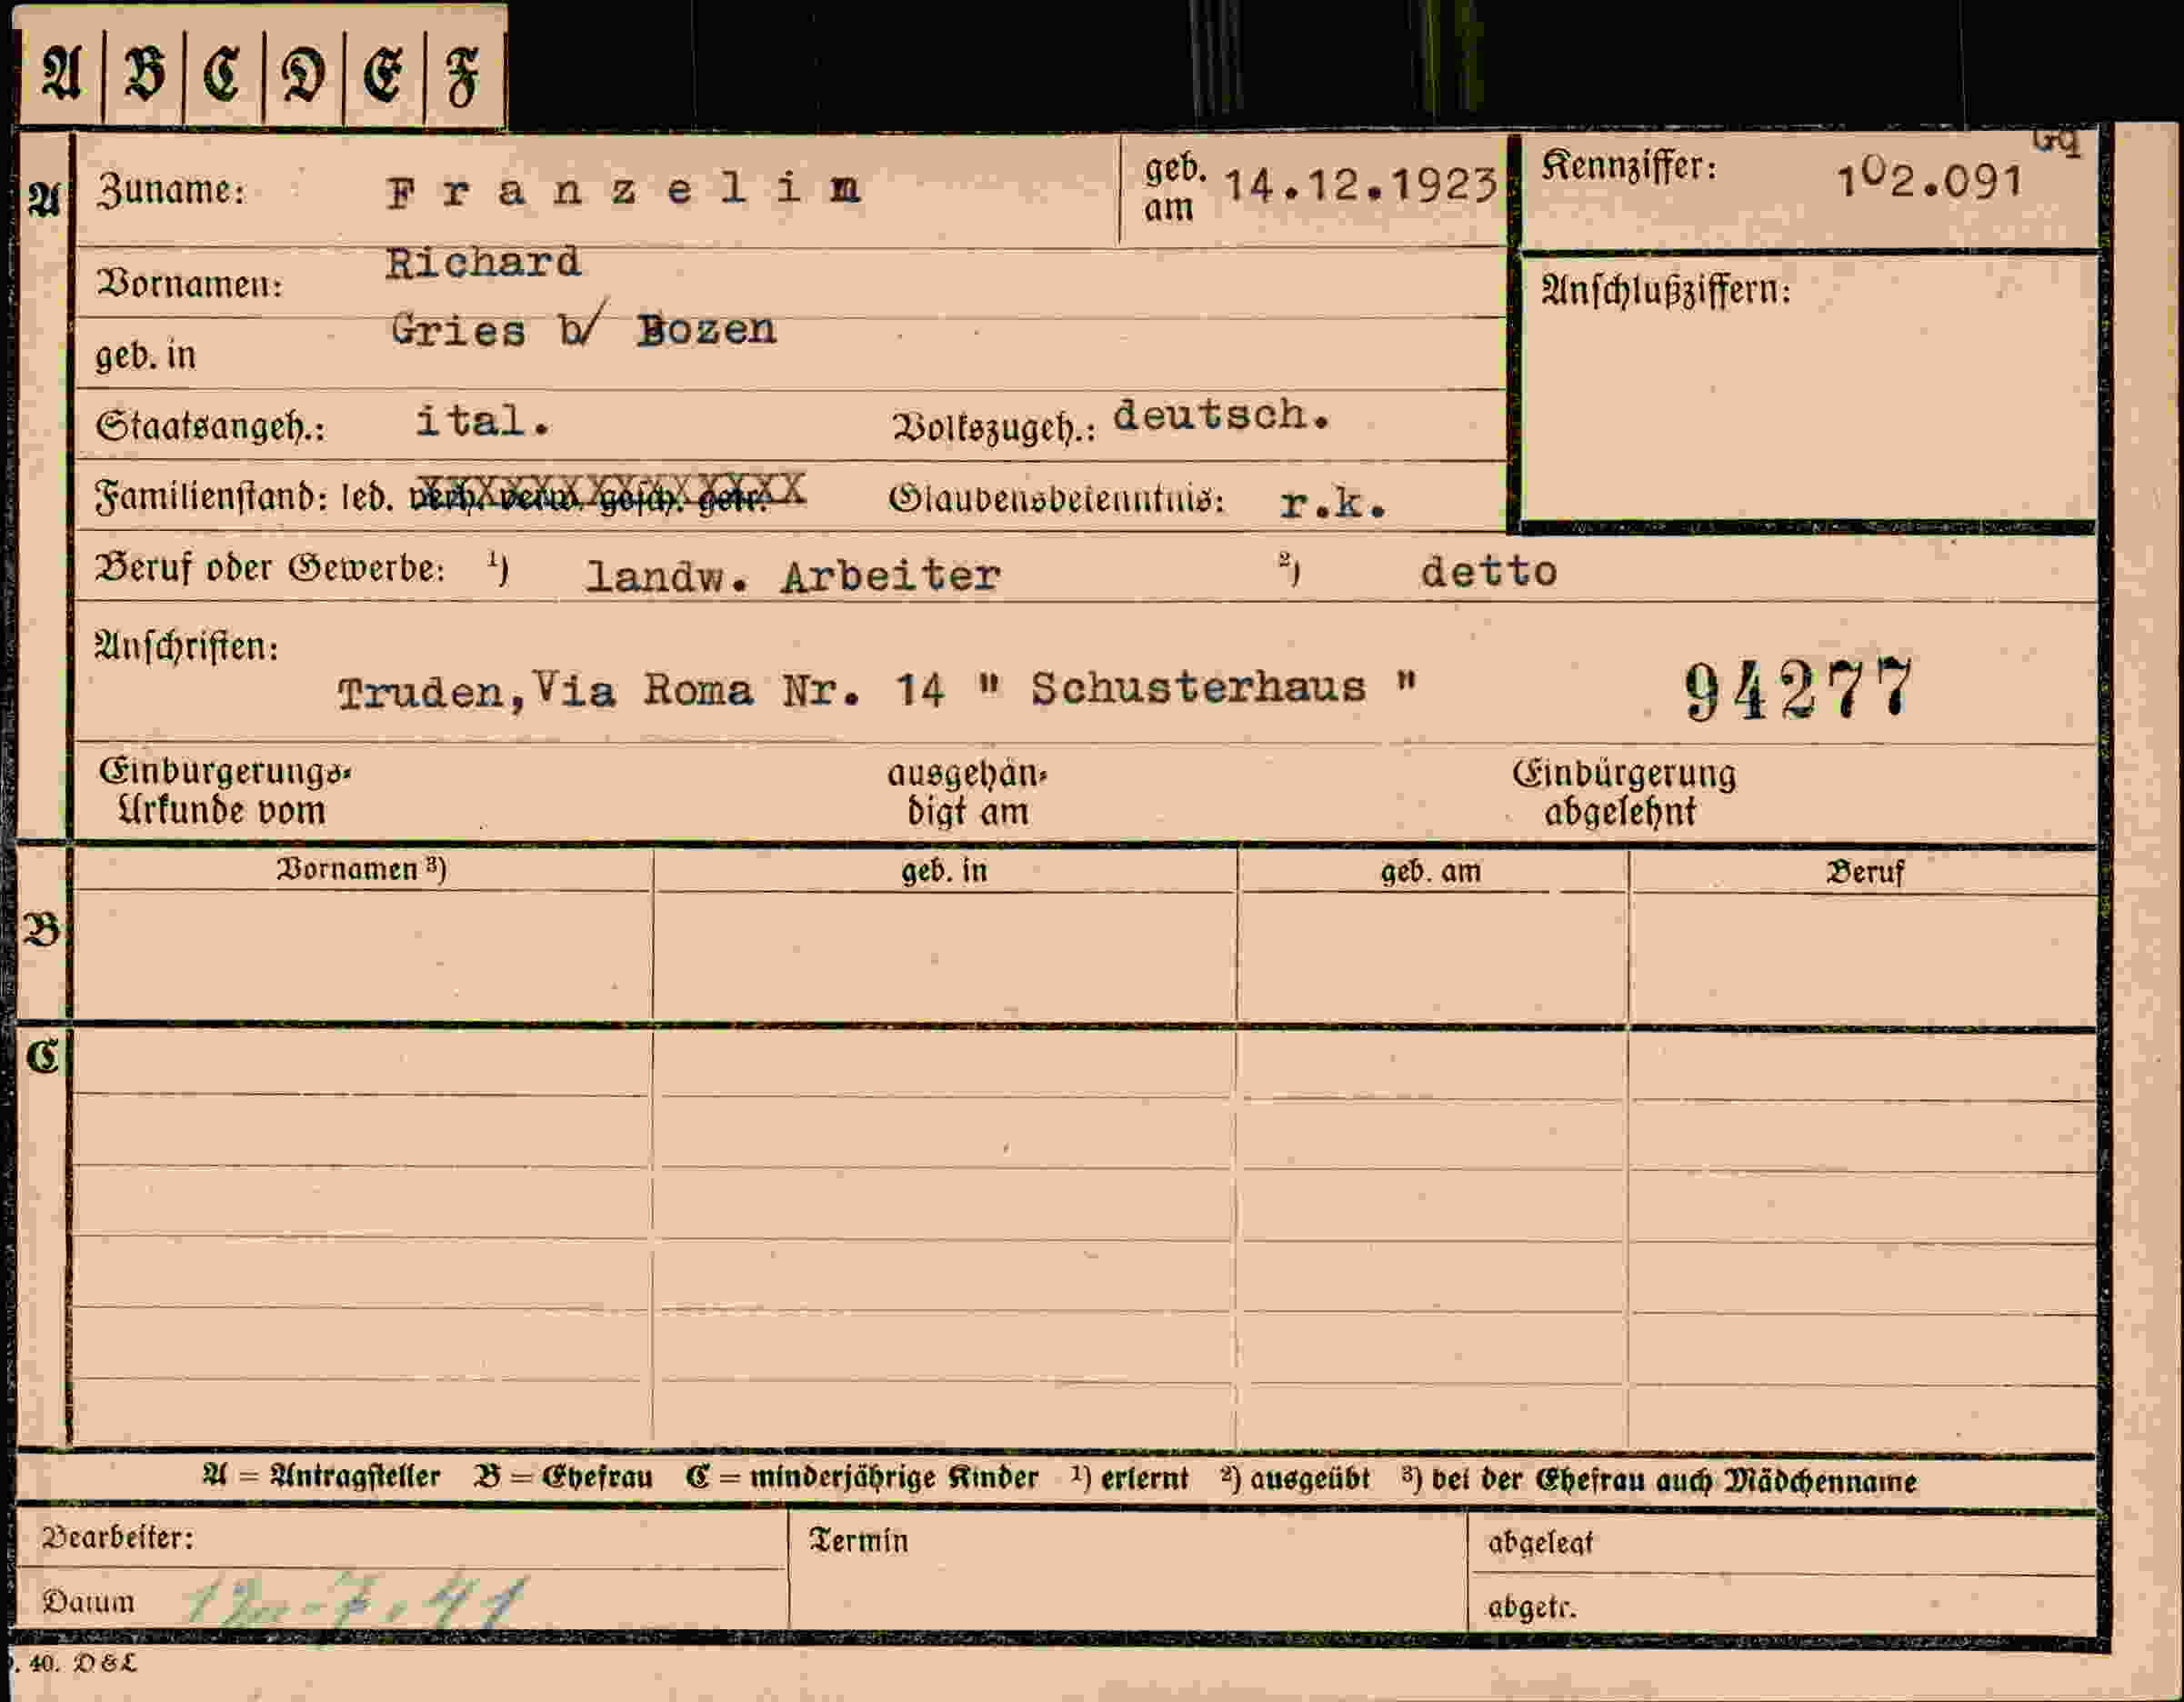 A B C D E F
Gq
A Zuname: Franzelin geb. am 14.12.1923 Kennziffer: 102.091
Vornamen: Richard Anschlußziffern:
geb. in Gries b/ Bozen
Staatsangeh.: ital. Volkszugeh.: deutsch.
Familienstand: led. verh. verw. gesch. getr. Glaubensbekenntnis: r.k.
Beruf oder Gewerbe: 1) landw. Arbeiter 2) detto
Anschriften:
Truden, Via Roma Nr. 14 " Schusterhaus " 94277
Einbürgerungs- ausgehän- Einbürgerung
Urkunde vom digt am abgelehnt
Vornamen 3) geb. in geb. am Beruf
B
C
A = Antragsteller B = Ehefrau C = minderjährige Kinder 1) erlernt 2) ausgeübt 3) bei der Ehefrau auch Mädchenname
Bearbeiter: Termin abgelegt
Datum 7.41 abgetr.
. 40. D & L